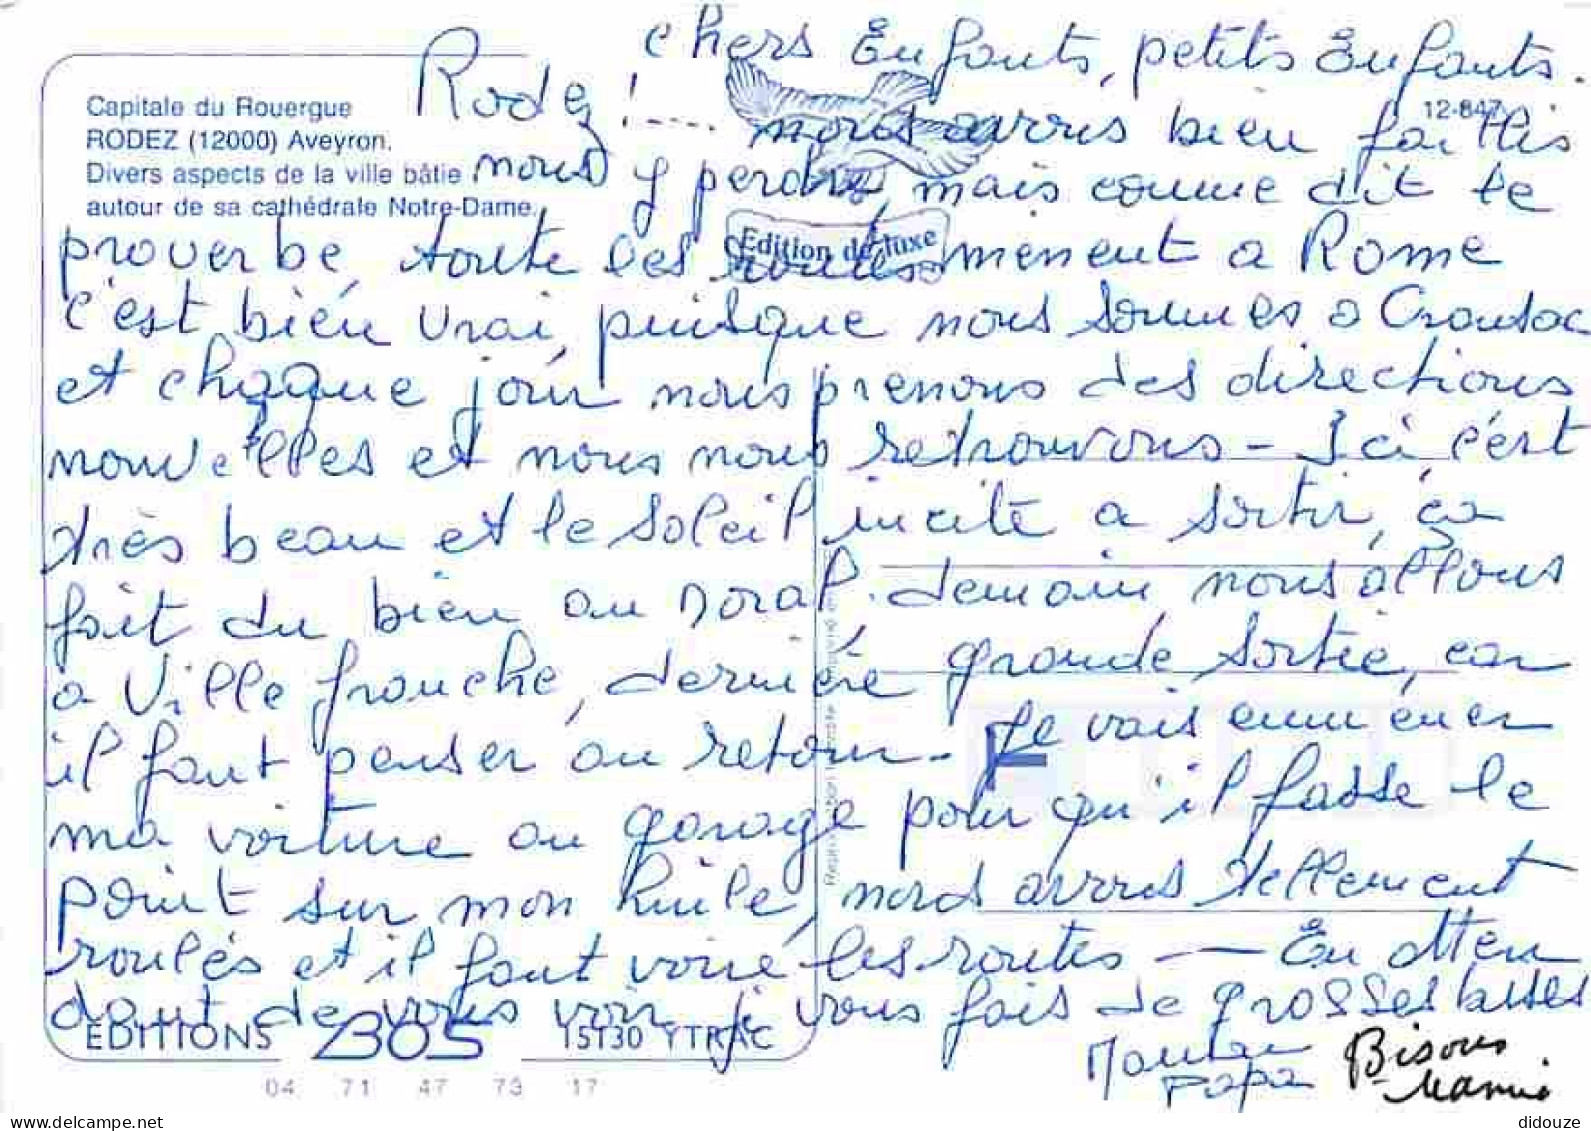 chers Enfants, petits Enfants.
Capitale du Rouergue
RODEZ (12000) Aveyron.
Divers aspects de la ville bâtie
autour de sa cathédrale Notre-Dame.
12-847
Edition de luxe
Rodez!.... nous avons bien faillis
nous y perdre, mais comme dit le
proverbe, toute les routes mènent a Rome
c'est bien vrai, puisque nous sommes a Cransac
et chaque jour nous prenons des directions
nouvelles et nous nous retrouvons - Ici, c'est
très beau et le soleil incite a sortir, ça
fait du bien au moral. demain nous allons
a Villefranche, dernière grande sortie, car
il faut penser au retour - Je vais emmener
ma voiture au garage pour qu'il fasse le
point sur mon huile, nous avons tellement
roulés et il faut voire les routes — En atten
dant de vous voir je vous fais de grosses bises
Maman
Papa
Bisous
Mamie
EDITIONS BOS 15130 YTRAC
04 71 47 73 17
didouze